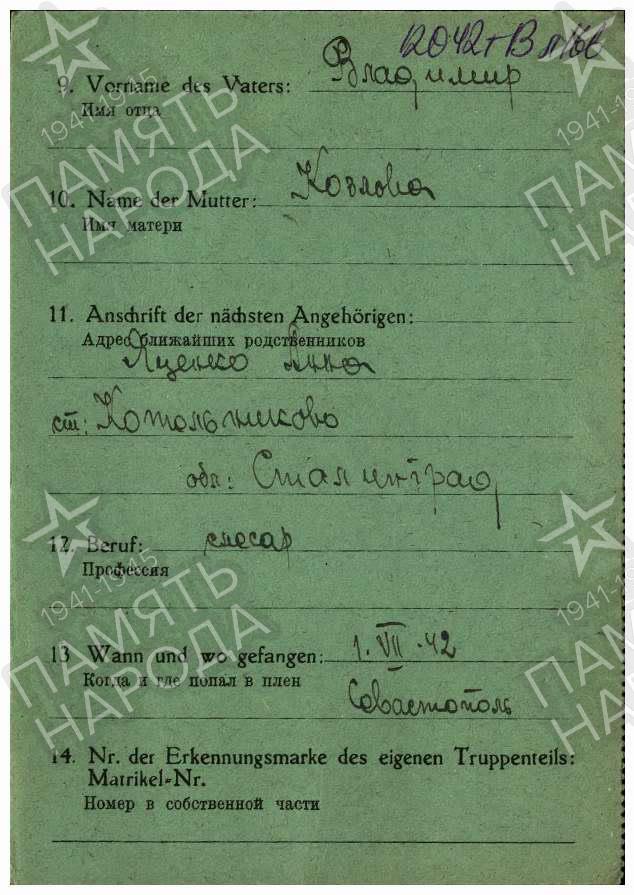 12042т В
9. Vorname des Vaters: Владимир
Имя отца
10. Name der Mutter: Козлова
Имя матери
11. Anschrift der nächsten Angehörigen:
Адрес ближайших родственников
Яценко Анна
ст: Котольниково
обл: Сталинград
12. Beruf: слесар
Профессия
13 Wann und wo gefangen: 1. VII. 42
Когда и где попал в плен
Севастополь
14. Nr. der Erkennungsmarke des eigenen Truppenteils:
Matrikel=Nr.
Номер в собственной части
1941-1945
ПАМЯТЬ
НАРОДА